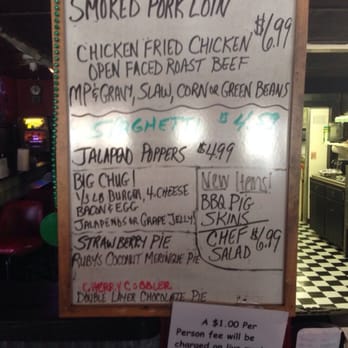 SMOKED PORK LOIN
CHICKEN FRIED CHICKEN $6.99
OPEN FACED ROAST BEEF
MP & GRAVY, SLAW, CORN OR GREEN BEANS
SPAGHETTI $4.59
JALAPENO POPPERS $4.99
BIG CHUG!
1/3 LB BURGER, 4. CHEESE
BACON & EGG
JALAPENOS OR GRAPE JELLY!
New Items!
BBQ PIG
SKINS
CHEF $6.99
SALAD
STRAWBERRY PIE
RUBY'S COCONUT MERINGUE PIE
CHERRY COBBLER
DOUBLE LAYER CHOCOLATE PIE
A $1.00 Per
Person fee will be
charged on